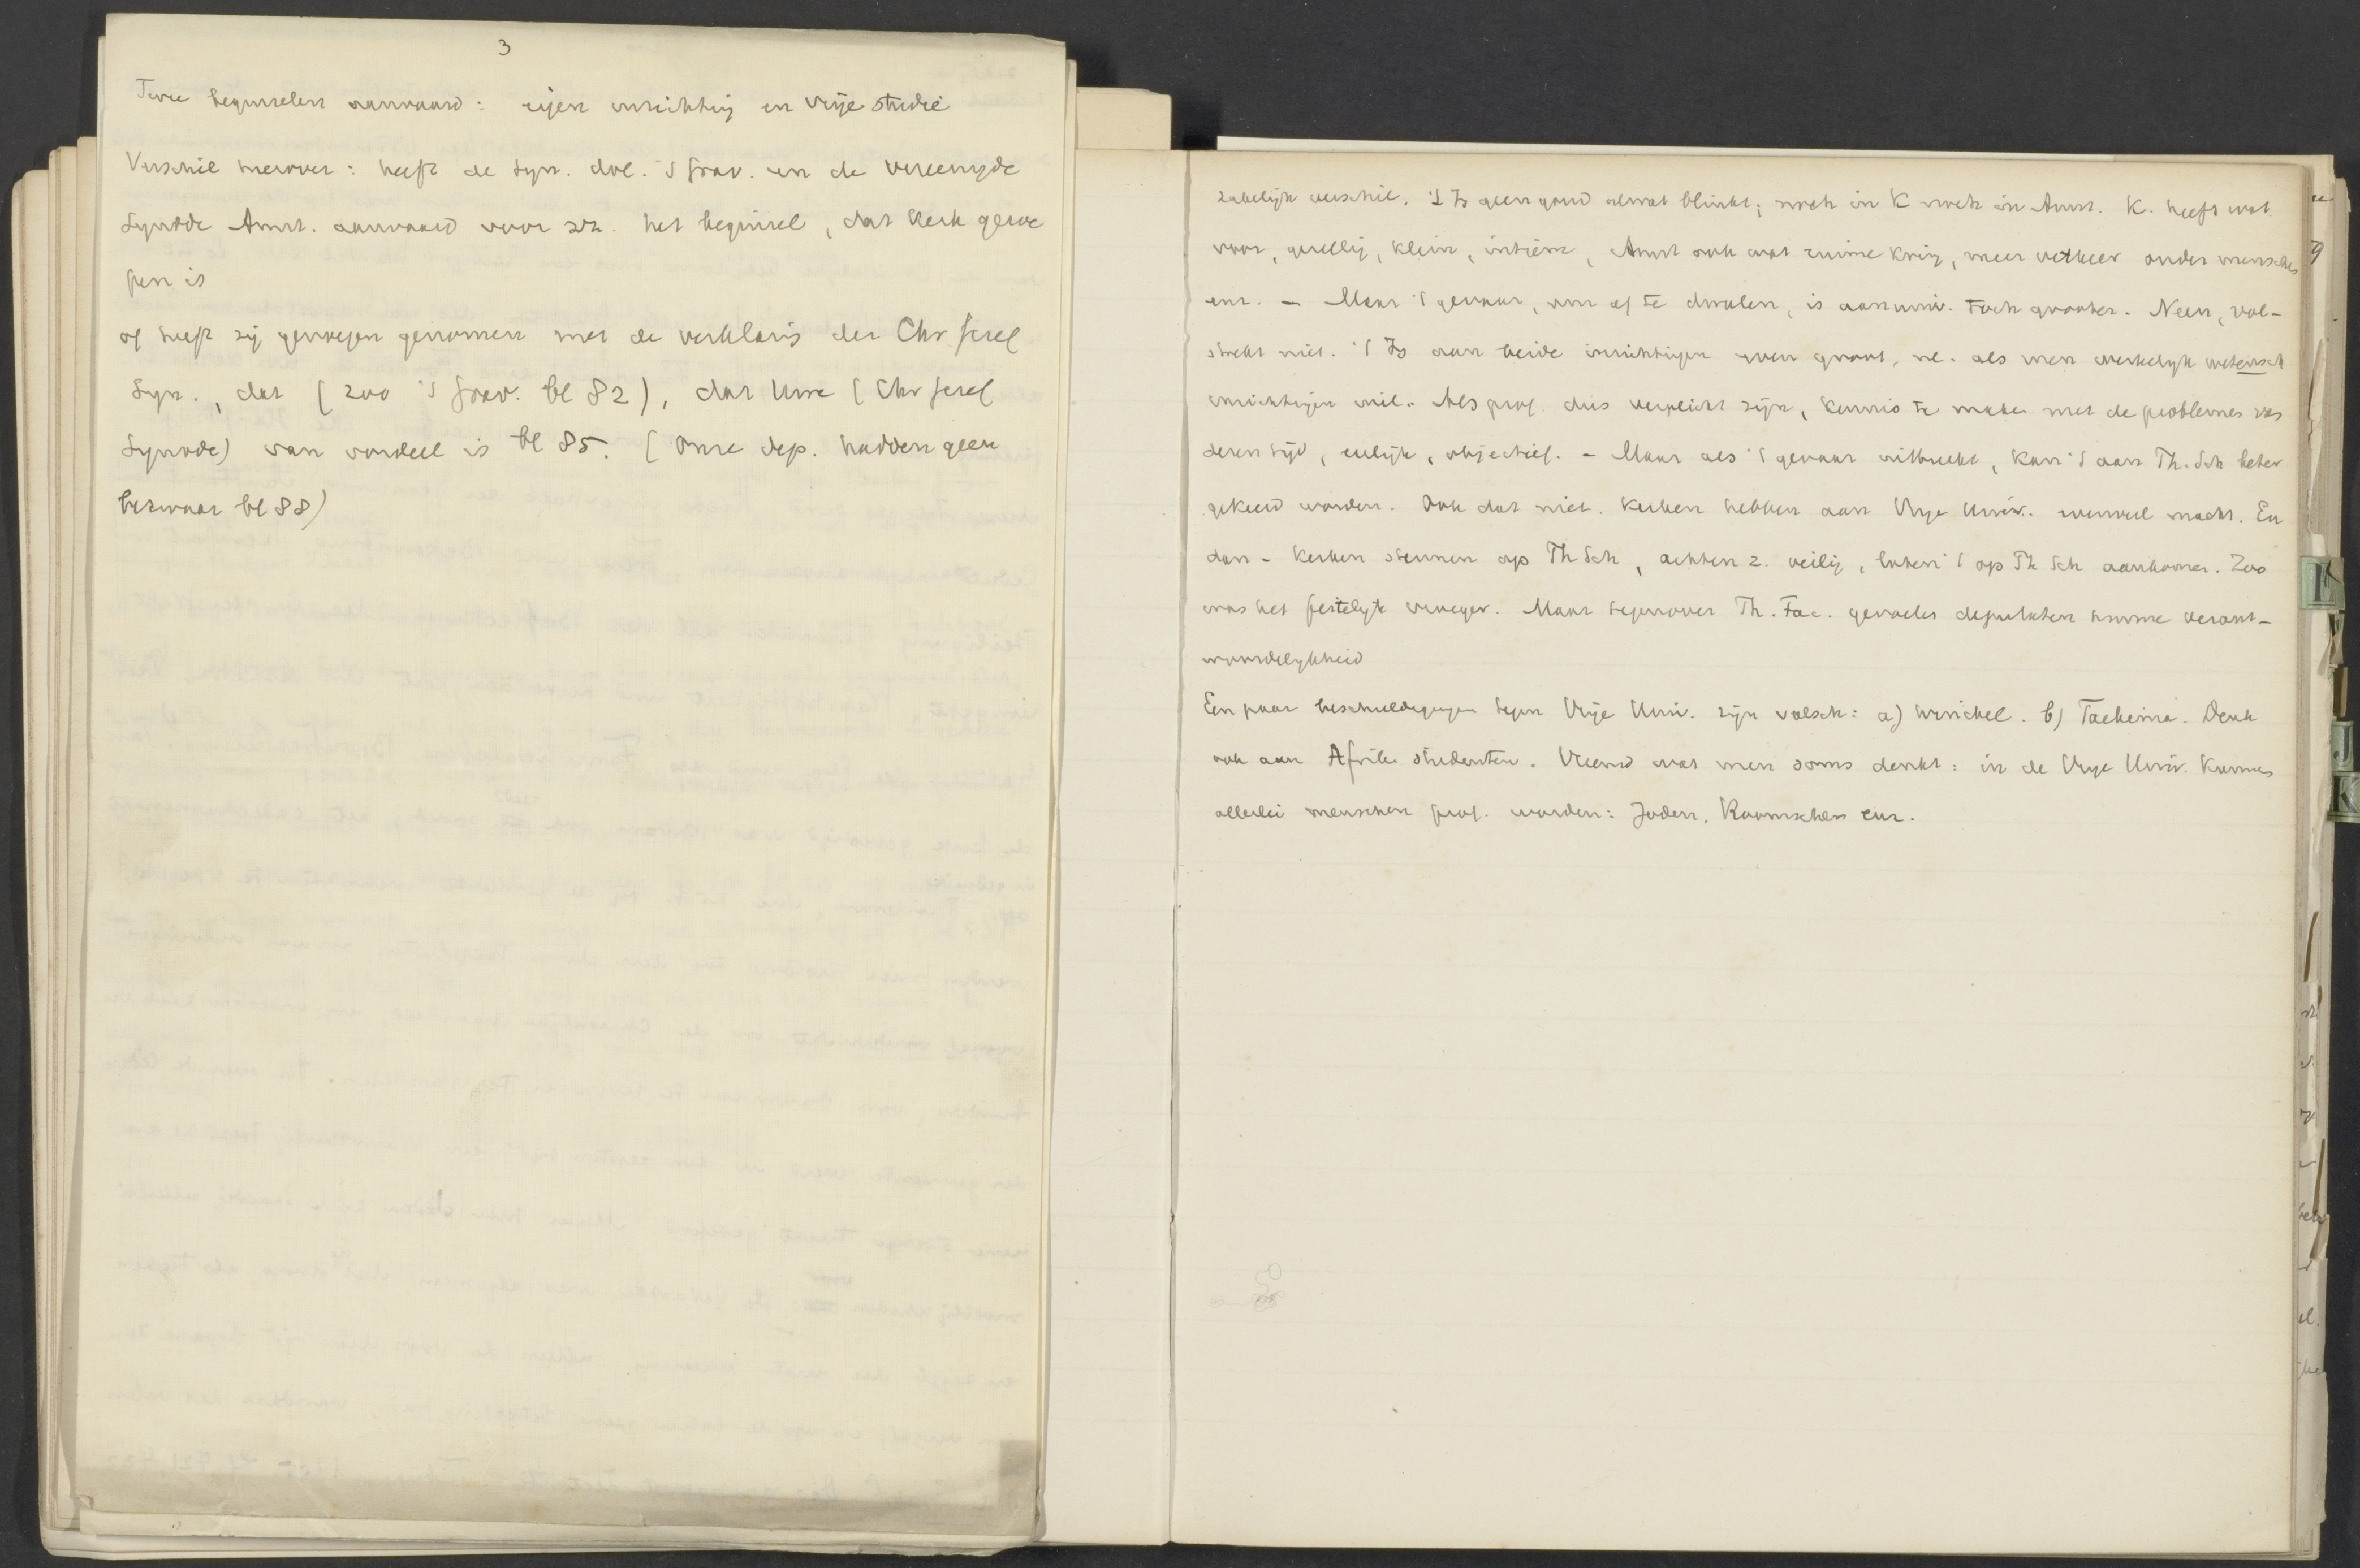 3
Twee beginselen aanvaard: eigen inrichting en vrije studie
Verschil hierover: heeft de Syn. dol. 's Grav. en de vereenigde
Synode Amst. aanvaard voor zich het beginsel, dat kerk geroe
pen is
of heeft zij genoegen genomen met de verklaring der Chr geref
Syn., dat (zoo 's Grav. bl 82), dat Uwe (Chr geref
Synode) van oordeel is bl 85. (Onze dep. hadden geen
bezwaar bl 88)
zakelijk verschil. 't Is geen goud alwat blinkt; noch in K noch in Amst. K. heeft wat
voor, gezellig, klein, intiem, Amst ook wat ruime kring, meer verkeer onder menschen
enz. - Maar 't gevaar, om af te dwalen, is aan univ. toch grooter. Neen, vol-
strekt niet. 't Is aan beide inrichtingen even groot, nl. als men werkelijk wetensch
inrichtingen wil. Als prof. dus verplicht zijn, kennis te maken met de problemen van
dezen tijd, eerlijk, objectief. - Maar als 't gevaar uitbreekt, kan 't aan Th. Sch beter
gekeerd worden. Ook dat niet. Kerken hebben aan Vrije Univ. evenveel macht. En
dan - kerken steunen op Th Sch, achten z. veilig, laten 't op Th Sch aankomen. Zoo
was het feitelijk vroeger. Maar tegenover Th. Fac. gevoelen deputaten hunne verant-
woordelijkheid
Een paar beschuldigingen tegen Vrije Univ. zijn valsch: a) Winckel. b) Taekema. Denk
ook aan Afrik. studenten. Vreemd wat men soms denkt: in de Vrije Univ. kunnen
allerlei menschen prof. worden: Joden, Roomschen enz.
I
J
K